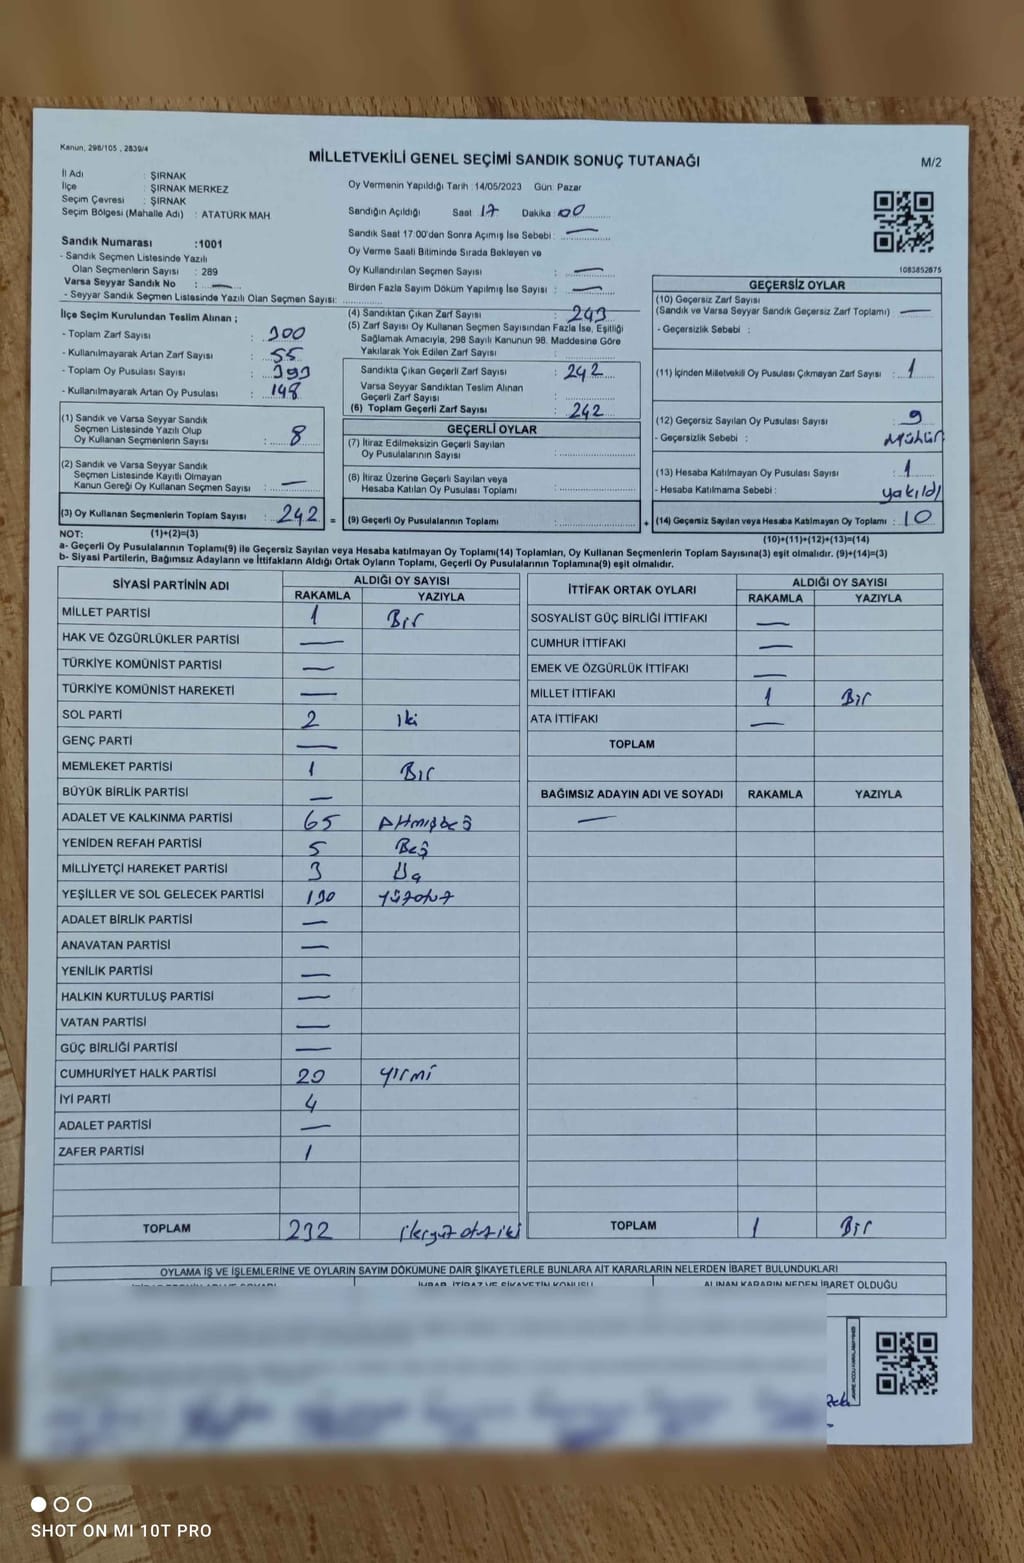 Kanun, 298/105 , 2839/4
MİLLETVEKİLİ GENEL SEÇİMİ SANDIK SONUÇ TUTANAĞI
M/2
İl Adı : ŞIRNAK
İlçe : ŞIRNAK MERKEZ
Seçim Çevresi : ŞIRNAK
Seçim Bölgesi (Mahalle Adı) : ATATÜRK MAH
Sandık Numarası :1001
- Sandık Seçmen Listesinde Yazılı
Olan Seçmenlerin Sayısı : 289
Varsa Seyyar Sandık No : —
- Seyyar Sandık Seçmen Listesinde Yazılı Olan Seçmen Sayısı:
Oy Vermenin Yapıldığı Tarih :14/05/2023 Gün: Pazar
Sandığın Açıldığı Saat 17 Dakika :00
Sandık Saat 17:00'den Sonra Açımış İse Sebebi : —
Oy Verme Saati Bitiminde Sırada Bekleyen ve
Oy Kullandırılan Seçmen Sayısı : —
Birden Fazla Sayım Döküm Yapılmış İse Sayısı : —
1083852875
İlçe Seçim Kurulundan Teslim Alınan ;
- Toplam Zarf Sayısı : 300
- Kullanılmayarak Artan Zarf Sayısı : 55
- Toplam Oy Pusulası Sayısı : 393
- Kullanılmayarak Artan Oy Pusulası : 148
(1) Sandık ve Varsa Seyyar Sandık
Seçmen Listesinde Yazılı Olup
Oy Kullanan Seçmenlerin Sayısı : 8
(2) Sandık ve Varsa Seyyar Sandık
Seçmen Listesinde Kayıtlı Olmayan
Kanun Gereği Oy Kullanan Seçmen Sayısı : —
(3) Oy Kullanan Seçmenlerin Toplam Sayısı : 242 =
(4) Sandıktan Çıkan Zarf Sayısı : 243
(5) Zarf Sayısı Oy Kullanan Seçmen Sayısından Fazla İse, Eşitliği
Sağlamak Amacıyla, 298 Sayılı Kanunun 98. Maddesine Göre
Yakılarak Yok Edilen Zarf Sayısı :
Sandıkta Çıkan Geçerli Zarf Sayısı : 242
Varsa Seyyar Sandıktan Teslim Alınan
Geçerli Zarf Sayısı :
(6) Toplam Geçerli Zarf Sayısı : 242
GEÇERLİ OYLAR
(7) İtiraz Edilmeksizin Geçerli Sayılan
Oy Pusulalarının Sayısı :
(8) İtiraz Üzerine Geçerli Sayılan veya
Hesaba Katılan Oy Pusulası Toplamı :
(9) Geçerli Oy Pusulalarının Toplamı : +
GEÇERSİZ OYLAR
(10) Geçersiz Zarf Sayısı
(Sandık ve Varsa Seyyar Sandık Geçersiz Zarf Toplamı) : —
- Geçersizlik Sebebi :
(11) İçinden Milletvekili Oy Pusulası Çıkmayan Zarf Sayısı : 1
(12) Geçersiz Sayılan Oy Pusulası Sayısı : 9
- Geçersizlik Sebebi : Mühür
(13) Hesaba Katılmayan Oy Pusulası Sayısı : 1
- Hesaba Katılmama Sebebi : yakıldı
(14) Geçersiz Sayılan veya Hesaba Katılmayan Oy Toplamı : 10
NOT: (1)+(2)=(3)
(10)+(11)+(12)+(13)=(14)
a- Geçerli Oy Pusulalarının Toplamı(9) ile Geçersiz Sayılan veya Hesaba katılmayan Oy Toplamı(14) Toplamları, Oy Kullanan Seçmenlerin Toplam Sayısına(3) eşit olmalıdır. (9)+(14)=(3)
b- Siyasi Partilerin, Bağımsız Adayların ve İttifakların Aldığı Ortak Oyların Toplamı, Geçerli Oy Pusulalarının Toplamına(9) eşit olmalıdır.
SİYASİ PARTİNİN ADI ALDIĞI OY SAYISI
RAKAMLA YAZIYLA
MİLLET PARTİSİ 1 Bir
HAK VE ÖZGÜRLÜKLER PARTİSİ —
TÜRKİYE KOMÜNİST PARTİSİ —
TÜRKİYE KOMÜNİST HAREKETİ —
SOL PARTİ 2 iki
GENÇ PARTİ —
MEMLEKET PARTİSİ 1 Bir
BÜYÜK BİRLİK PARTİSİ —
ADALET VE KALKINMA PARTİSİ 65 Altmışbeş
YENİDEN REFAH PARTİSİ 5 Beş
MİLLİYETÇİ HAREKET PARTİSİ 3 Üç
YEŞİLLER VE SOL GELECEK PARTİSİ 130 Yüzotuz
ADALET BİRLİK PARTİSİ —
ANAVATAN PARTİSİ —
YENİLİK PARTİSİ —
HALKIN KURTULUŞ PARTİSİ —
VATAN PARTİSİ —
GÜÇ BİRLİĞİ PARTİSİ —
CUMHURİYET HALK PARTİSİ 20 Yirmi
İYİ PARTİ 4
ADALET PARTİSİ —
ZAFER PARTİSİ 1
TOPLAM 232 ikiyüz otuz iki
İTTİFAK ORTAK OYLARI ALDIĞI OY SAYISI
RAKAMLA YAZIYLA
SOSYALİST GÜÇ BİRLİĞİ İTTİFAKI —
CUMHUR İTTİFAKI —
EMEK VE ÖZGÜRLÜK İTTİFAKI —
MİLLET İTTİFAKI 1 Bir
ATA İTTİFAKI —
TOPLAM
BAĞIMSIZ ADAYIN ADI VE SOYADI RAKAMLA YAZIYLA
—
TOPLAM 1 Bir
OYLAMA İŞ VE İŞLEMLERİNE VE OYLARIN SAYIM DÖKÜMÜNE DAİR ŞİKAYETLERLE BUNLARA AİT KARARLARIN NELERDEN İBARET BULUNDUKLARI
İHBAR, İTİRAZ VE ŞİKAYETİN KONUSU
ALINAN KARARIN NEDEN İBARET OLDUĞU
SHOT ON MI 10T PRO